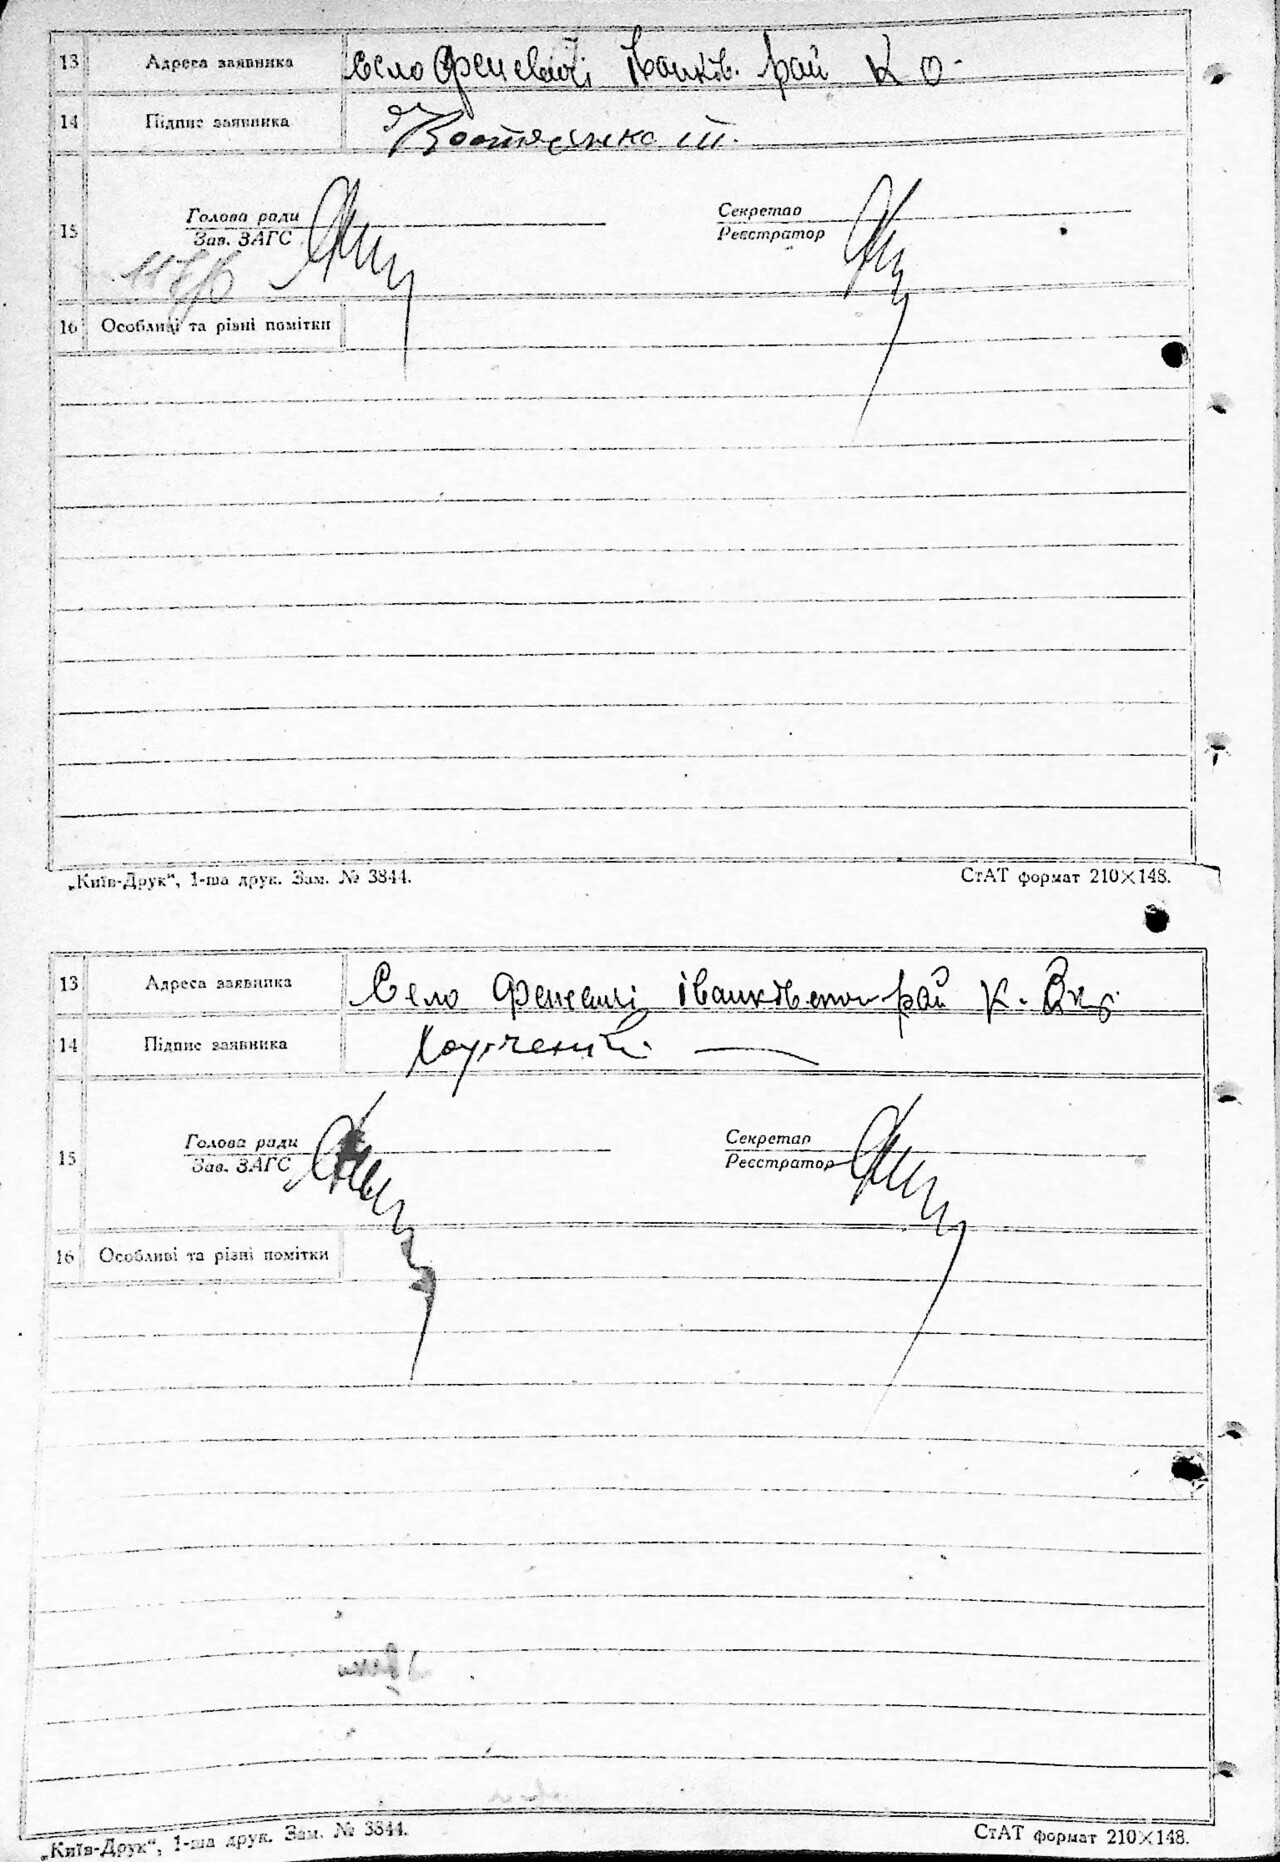 13 Адреса заявника село Феневичі Іванків. рай К О.
14 Підпис заявника
Голова ради Секретар
15 Зав. ЗАГС Реєстратор
16 Особливі та різні помітки
„Київ-Друк“, 1-ша друк. Зам. № 3844. СтАТ формат 210×148.
13 Адреса заявника Село Феневичі Іванківського рай К.
14 Підпис заявника
Голова ради Секретар
15 Зав. ЗАГС Реєстратор
16 Особливі та різні помітки
„Київ-Друк“, 1-ша друк. Зам. № 3844. СтАТ формат 210×148.